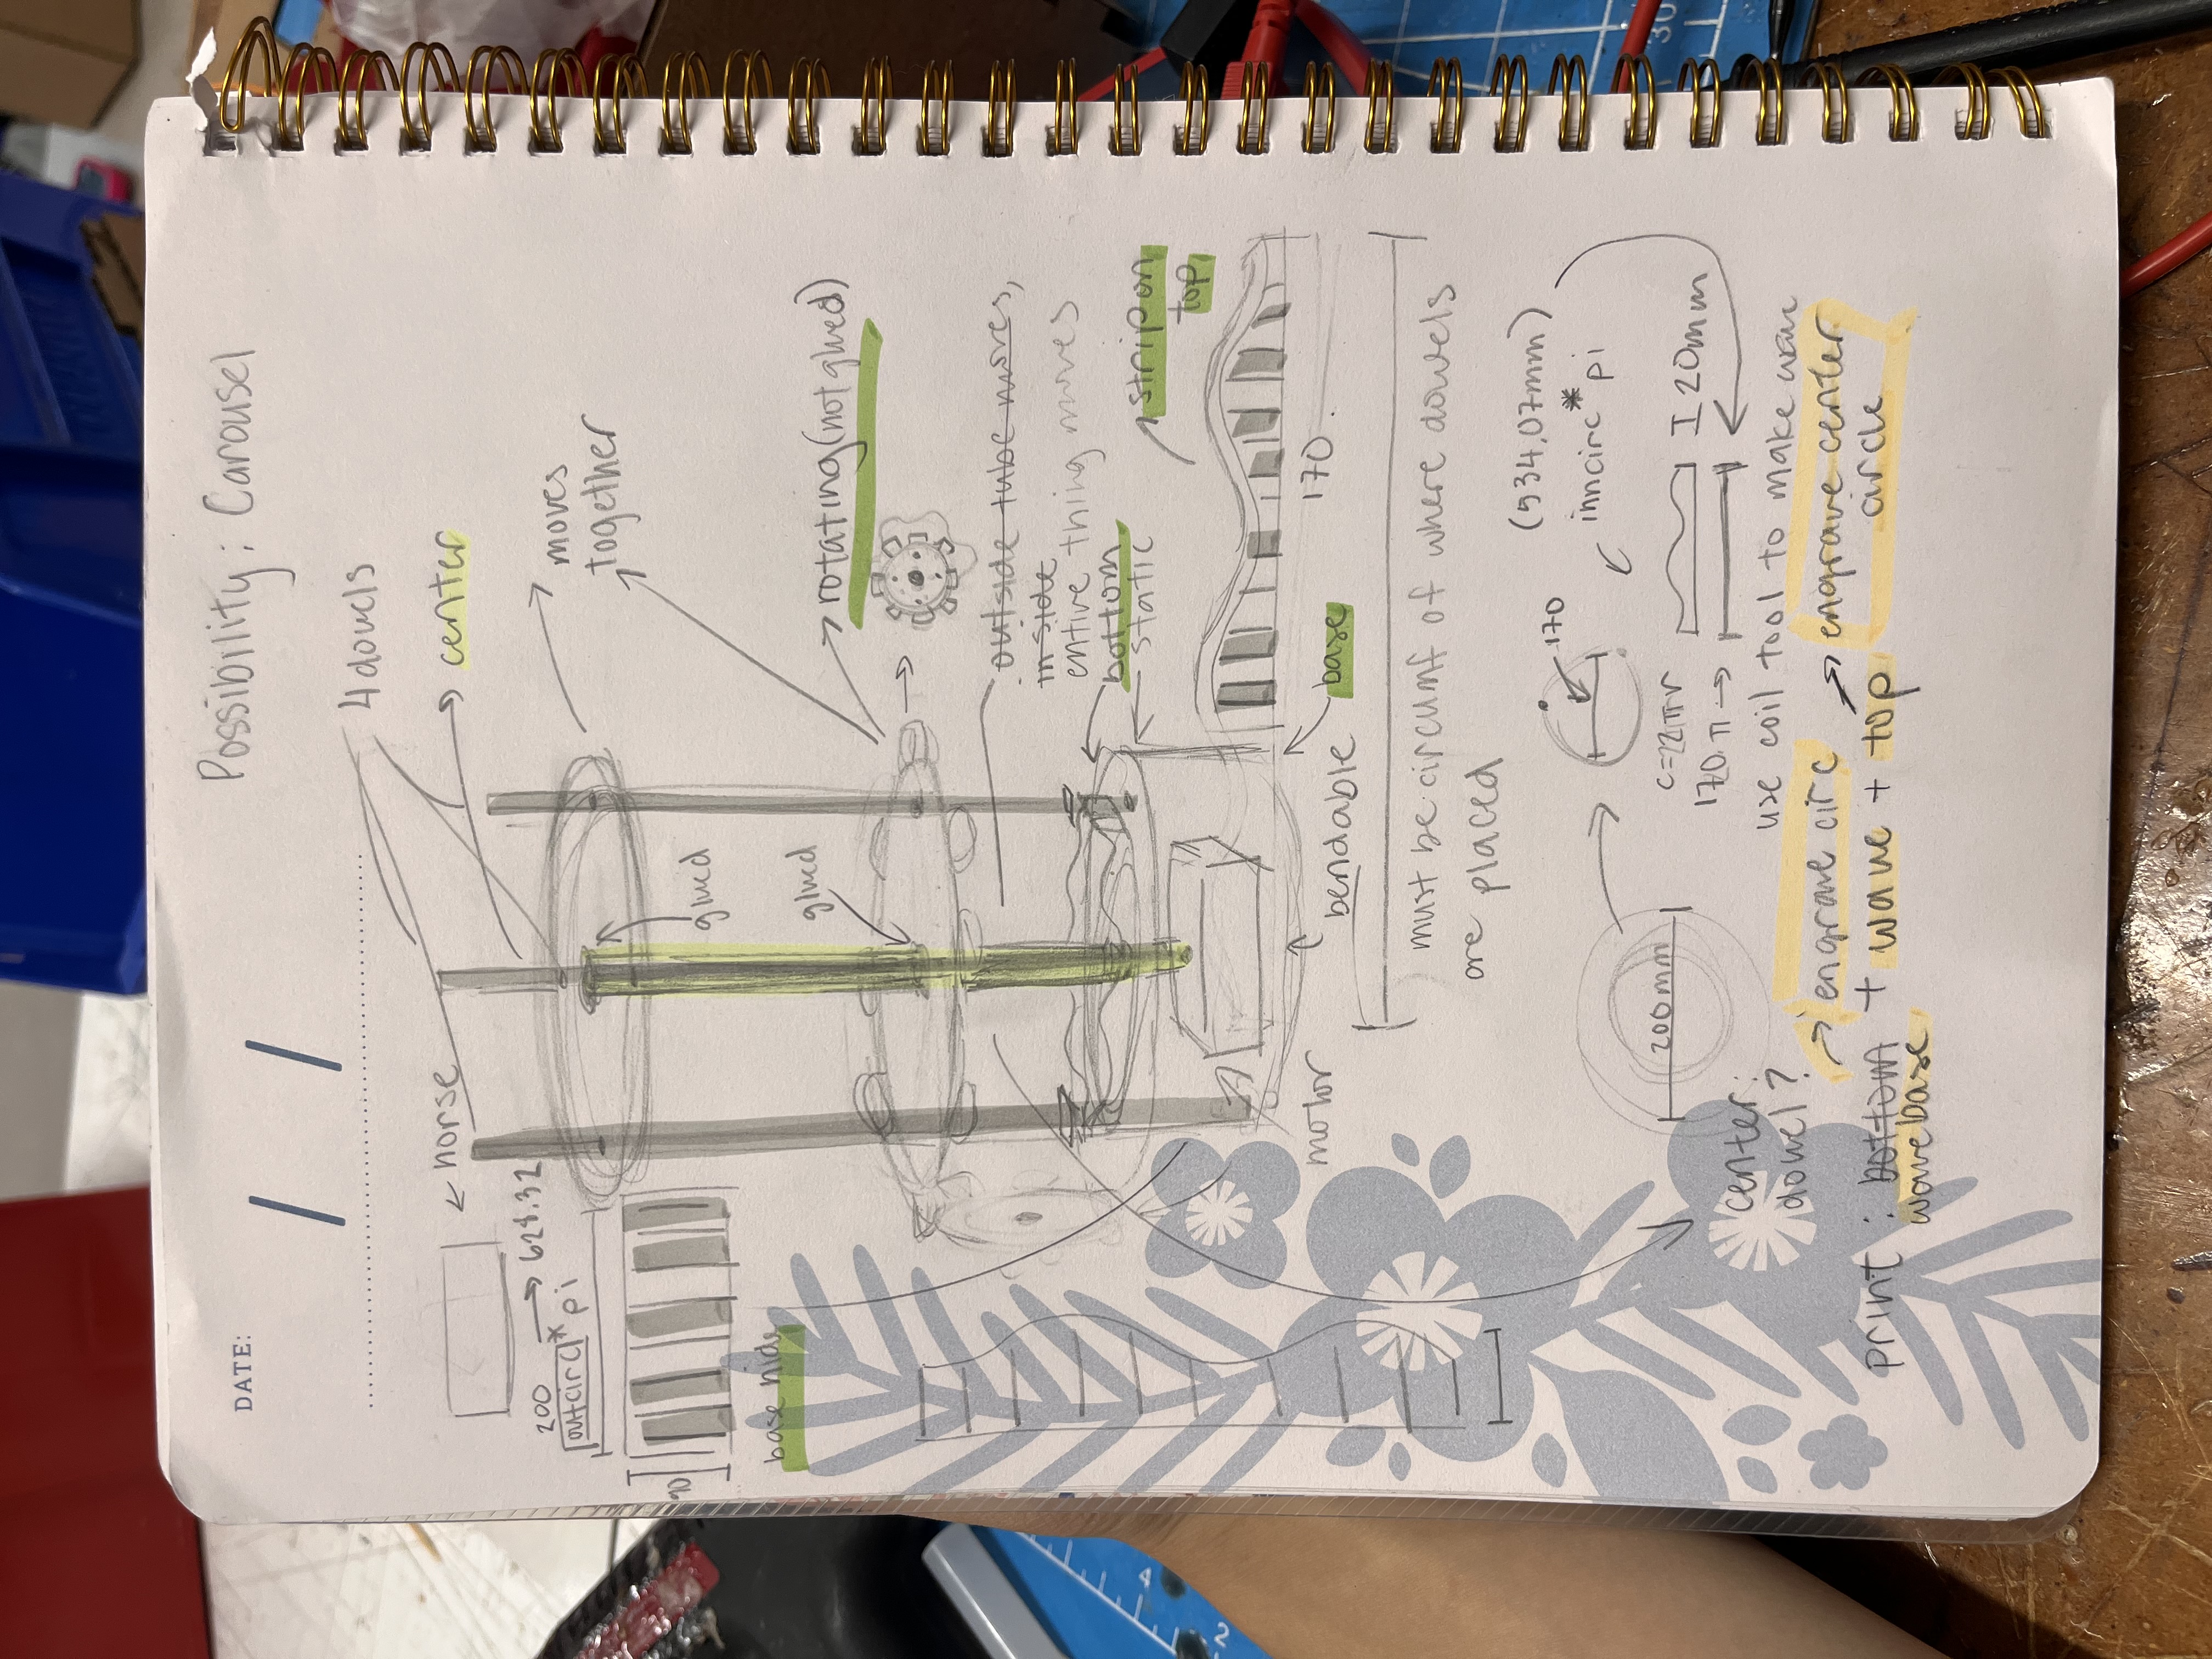 DATE: / /
Possibility : Carousel
4 dowels
← horse
→ center
200 → 628.32
outcircl * pi
moves
together
90
glued
base hide
glued
→ rotating (not glued)
outside tube moves,
inside
entire thing moves
bottom
static
strip on
top
motor
bendable
base
170
must be circumf of where dowels
are placed
(534,07mm)
170
inncirc * pi
200mm
c=22πr
I 20mm
170.π →
center:
dowel?
use coil tool to make wave
→ engrave circ
→ engrave center
circle
print : bottom + wave + top
wavebase
4
2
30